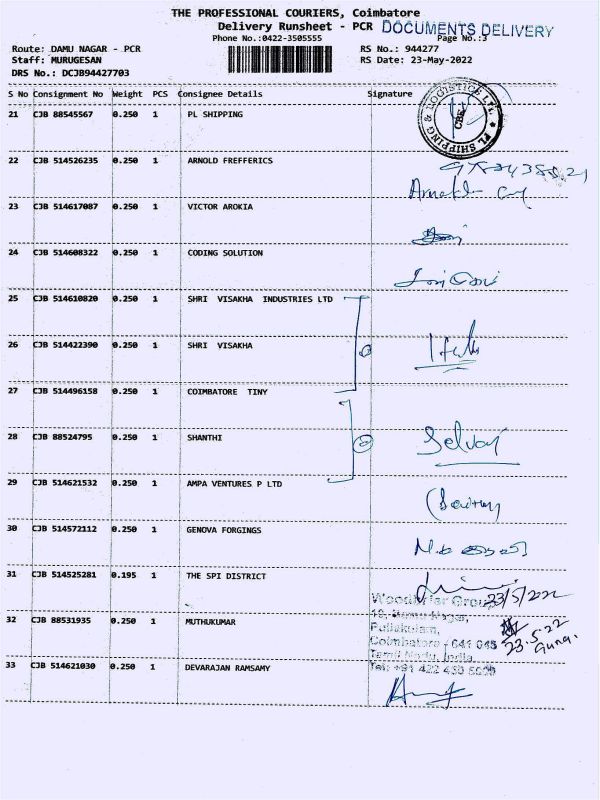 THE PROFESSIONAL COURIERS, Coimbatore
Delivery Runsheet - PCR DOCUMENTS DELIVERY
Phone No.:0422-3505555 Page No.:3
Route: DAMU NAGAR - PCR RS No.: 944277
Staff: MURUGESAN RS Date: 23-May-2022
DRS No.: DCJB94427703
S No Consignment No Weight PCS Consignee Details Signature
21 CJB 88545567 0.250 1 PL SHIPPING
PL SHIPPING & LOGISTICS LTD. CBE
22 CJB 514526235 0.250 1 ARNOLD FREFFERICS
23 CJB 514617087 0.250 1 VICTOR AROKIA
24 CJB 514608322 0.250 1 CODING SOLUTION
25 CJB 514610820 0.250 1 SHRI VISAKHA INDUSTRIES LTD
26 CJB 514422390 0.250 1 SHRI VISAKHA
27 CJB 514496158 0.250 1 COIMBATORE TINY
28 CJB 88524795 0.250 1 SHANTHI Selvaj
29 CJB 514621532 0.250 1 AMPA VENTURES P LTD
30 CJB 514572112 0.250 1 GENOVA FORGINGS
31 CJB 514525281 0.195 1 THE SPI DISTRICT
Woodbriar Group 23/5/2022
Coimbatore - 641 045
Tamil Nadu, India
32 CJB 88531935 0.250 1 MUTHUKUMAR 23.5.22
Guna.
33 CJB 514621030 0.250 1 DEVARAJAN RAMSAMY